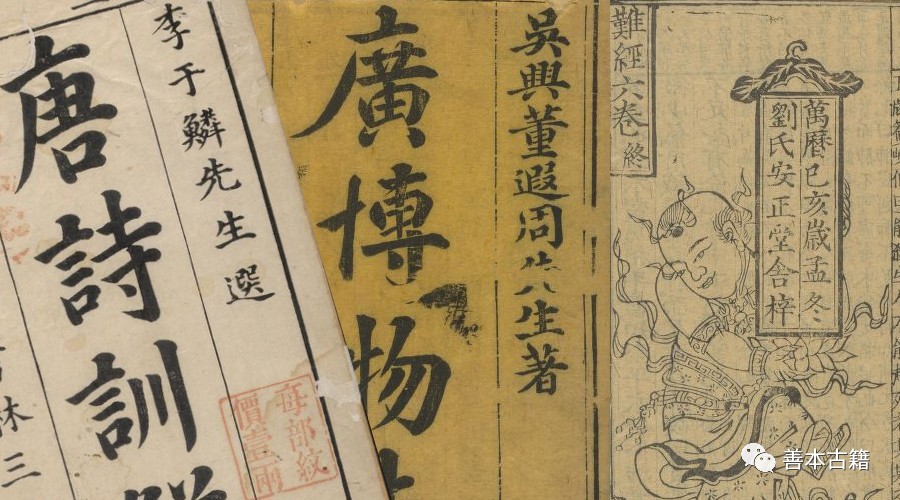 李于鱗先生選
唐詩訓
林三
每部紋
價壹兩
吳興董遐周先生著
廣博物
難經六卷終
萬曆已亥歲孟冬
劉氏安正堂舍梓
善本古籍